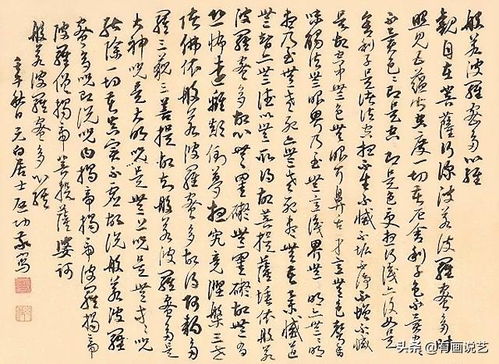 般若波羅蜜多心經
觀自在菩薩行深波若波羅蜜多時
照見五蘊皆空度一切苦厄舍利子色不異空
空不異色色即是空空即是色受想行識亦復如是
舍利子是諸法空相不生不滅不垢不淨不增不減
是故空中無色無眼耳鼻舌身意無色聲香
味觸法無眼界乃至無意識界無無明亦無無明
盡乃至無老死亦無老死盡無苦集滅道
無智亦無得以無所得故菩提薩埵依般若
波羅蜜多故心無罣礙無罣礙故無有恐
怖遠離顛倒夢想究竟涅槃三世諸
佛依般若波羅蜜多故得阿耨多
羅三藐三菩提故知般若波羅蜜多是
大神咒是大明咒是無上咒是無等等咒
能除一切苦真實不虛故說般若波羅
蜜多咒即說咒曰揭帝揭帝波羅揭帝
波羅僧揭帝菩提薩婆訶
般若波羅蜜多心經
秋日元白居士启功敬寫
头条 @有画说艺